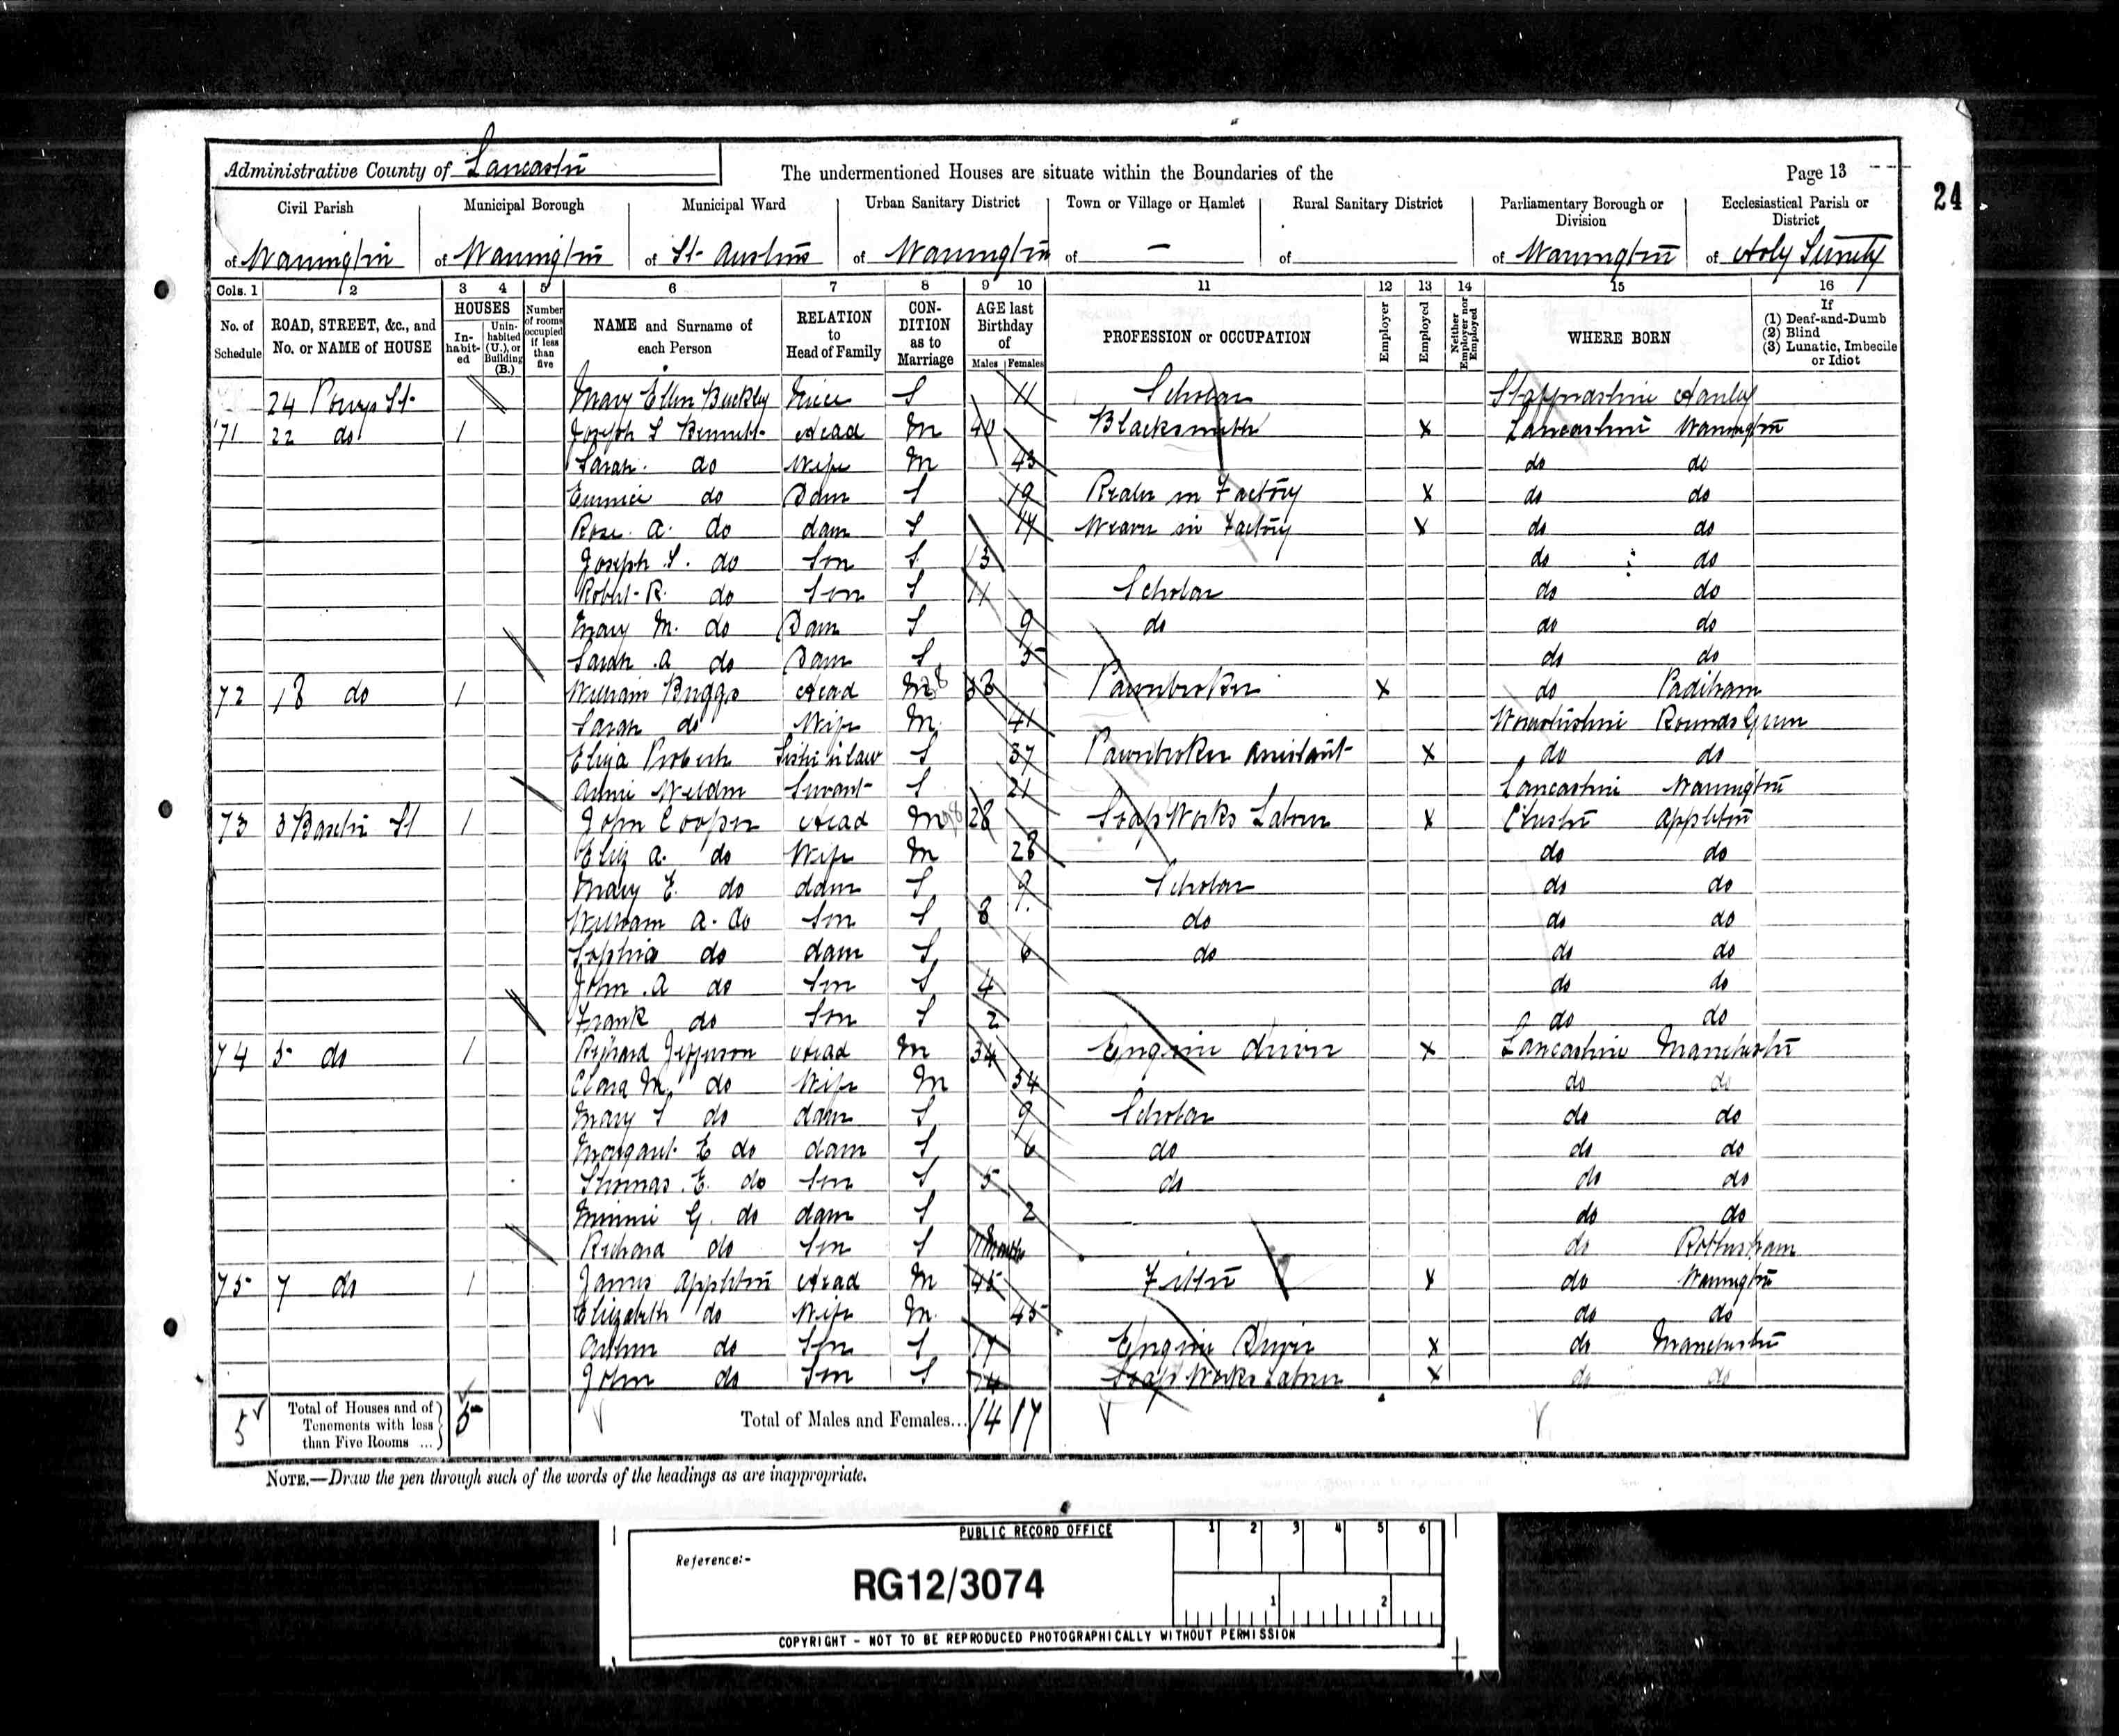 Administrative County of Lancaster
The undermentioned Houses are situate within the Boundaries of the
Page 13
24
Civil Parish
Municipal Borough
Municipal Ward
Urban Sanitary District
Town or Village or Hamlet
Rural Sanitary District
Parliamentary Borough or Division
Ecclesiastical Parish or District
of Warrington
of Warrington
of St. Austins
of Warrington
of —
of
of Warrington
of Holy Trinity
Cols. 1 2 3 4 5 6 7 8 9 10 11 12 13 14 15 16
No. of Schedule
ROAD, STREET, &c., and No. or NAME of HOUSE
HOUSES
In-habit-ed
Unin-habited (U.), or Building (B.)
Number of rooms occupied if less than five
NAME and Surname of each Person
RELATION to Head of Family
CON-DITION as to Marriage
AGE last Birthday of
Males
Females
PROFESSION or OCCUPATION
Employer
Employed
Neither Employer nor Employed
WHERE BORN
If
(1) Deaf-and-Dumb
(2) Blind
(3) Lunatic, Imbecile or Idiot
24 Powys St. Mary Ellen Buckley Niece S 11 Scholar Staffordshire Hanley
71 22 do 1 Joseph S Bennett Head M 40 Blacksmith X Lancashire Warrington
Sarah do Wife M 43 do do
Eunice do Daur S 19 Reeler in Factory X do do
Rose A. do daur S 17 Weaver in Factory X do do
Joseph S. do Son S 13 do do
Robert R. do Son S 11 Scholar do do
Mary M. do Daur S 9 do do do
Sarah A do Daur S 5 do do
72 18 do 1 William Briggs Head M 38 Pawnbroker X do Padiham
Sarah do Wife M 41 Rounds Green
Eliza Sister in law S 37 Pawnbroker assistant X do do
Annie Weldon Servant S 21 Lancashire Warrington
73 3 St 1 John Cooper Head M 28 Soap Works Labourer X Cheshire Appleton
Eliz A. do Wife M 28 do do
Mary E. do daur S 9 Scholar do do
William A. do Son S 8 do do do
Sophia do daur S 6 do do do
John A do Son S 4 do do
Frank do Son S 2 do do
74 5 do 1 Richard Jefferson Head M 34 Engine driver X Lancashire Manchester
Clara M. do Wife M 34 do do
Mary S do daur S 9 Scholar do do
Margaret E do daur S 6 do do do
Thomas E. do Son S 5 do do do
Minnie G. do daur S 2 do do
Richard do Son S 11 Months do
75 7 do 1 James Appleton Head M 45 Fitter X do Warrington
Elizabeth do Wife M 45 do do
Arthur do Son S 17 Engine Driver X do Manchester
John do Son S 14 Soap Works Labourer X do do
5 Total of Houses and of Tenements with less than Five Rooms ... 5 Total of Males and Females... 14 17
NOTE.—Draw the pen through such of the words of the headings as are inappropriate.
PUBLIC RECORD OFFICE
1 2 3 4 5 6
Reference:-
RG12/3074
1 2
COPYRIGHT - NOT TO BE REPRODUCED PHOTOGRAPHICALLY WITHOUT PERMISSION